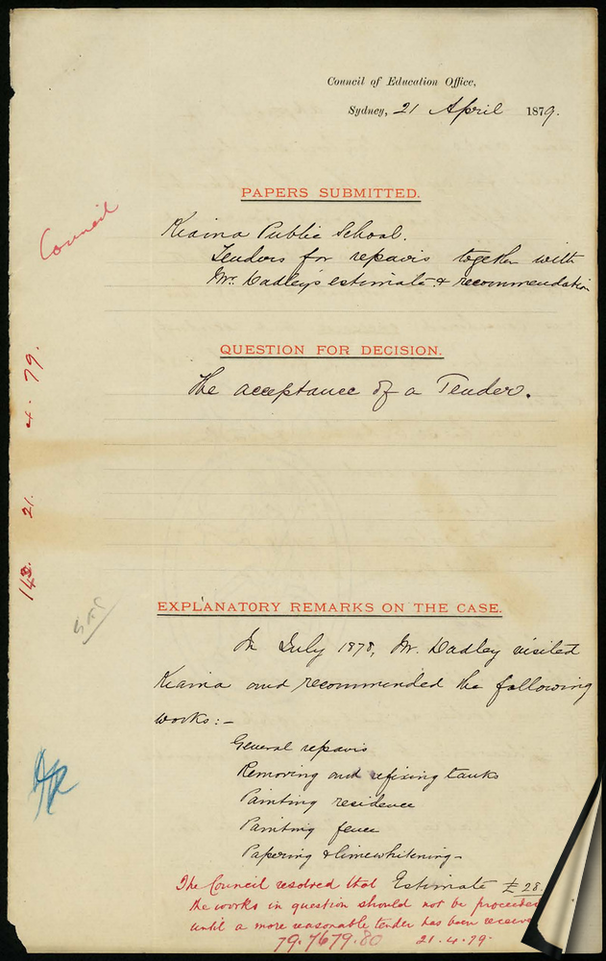 Council of Education Office,
Sydney, 21 April 1879.
PAPERS SUBMITTED.
Council
Kiama Public School.
Tenders for repairs together with
Mr. Dadley's estimate & recommendation
QUESTION FOR DECISION.
The acceptance of a Tender.
4. 79.
21.
EXPLANATORY REMARKS ON THE CASE.
In July 1878, Mr. Dadley visited
Kiama and recommended the following
works:-
General repairs
Removing and refixing tanks
Painting residence
Painting fence
Papering & limewhitening-
Estimate £28
The Council resolved that
the works in question should not be proceeded
until a more reasonable tender has been
79.7679.80 21.4.79.